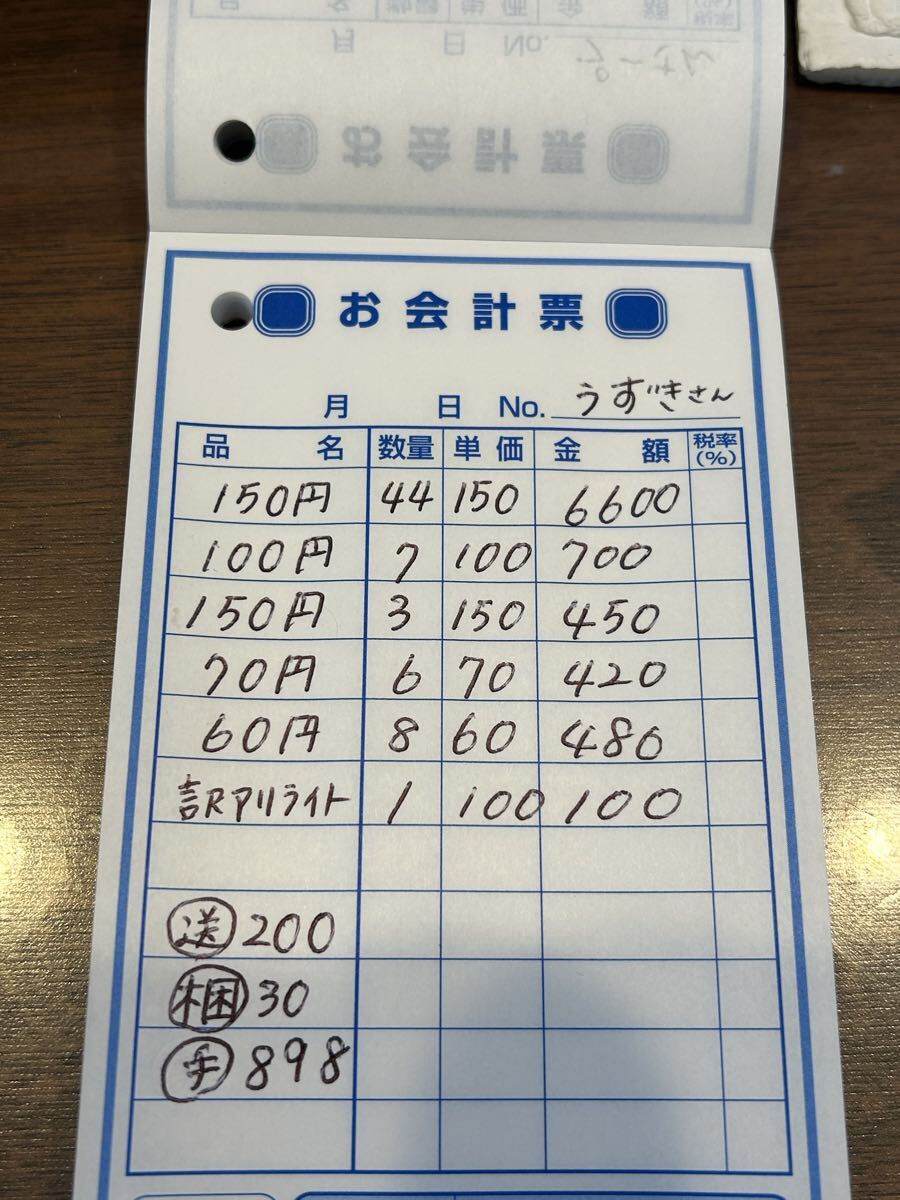 品 名 数量 単価 金 額 税率(%)
月 日 No. プーさん
お会計票
お会計票
月 日 No. うずきさん
品 名 数量 単価 金 額 税率(%)
150円 44 150 6600
100円 7 100 700
150円 3 150 450
70円 6 70 420
60円 8 60 480
訳アリライト 1 100 100
送 200
梱 30
手 898